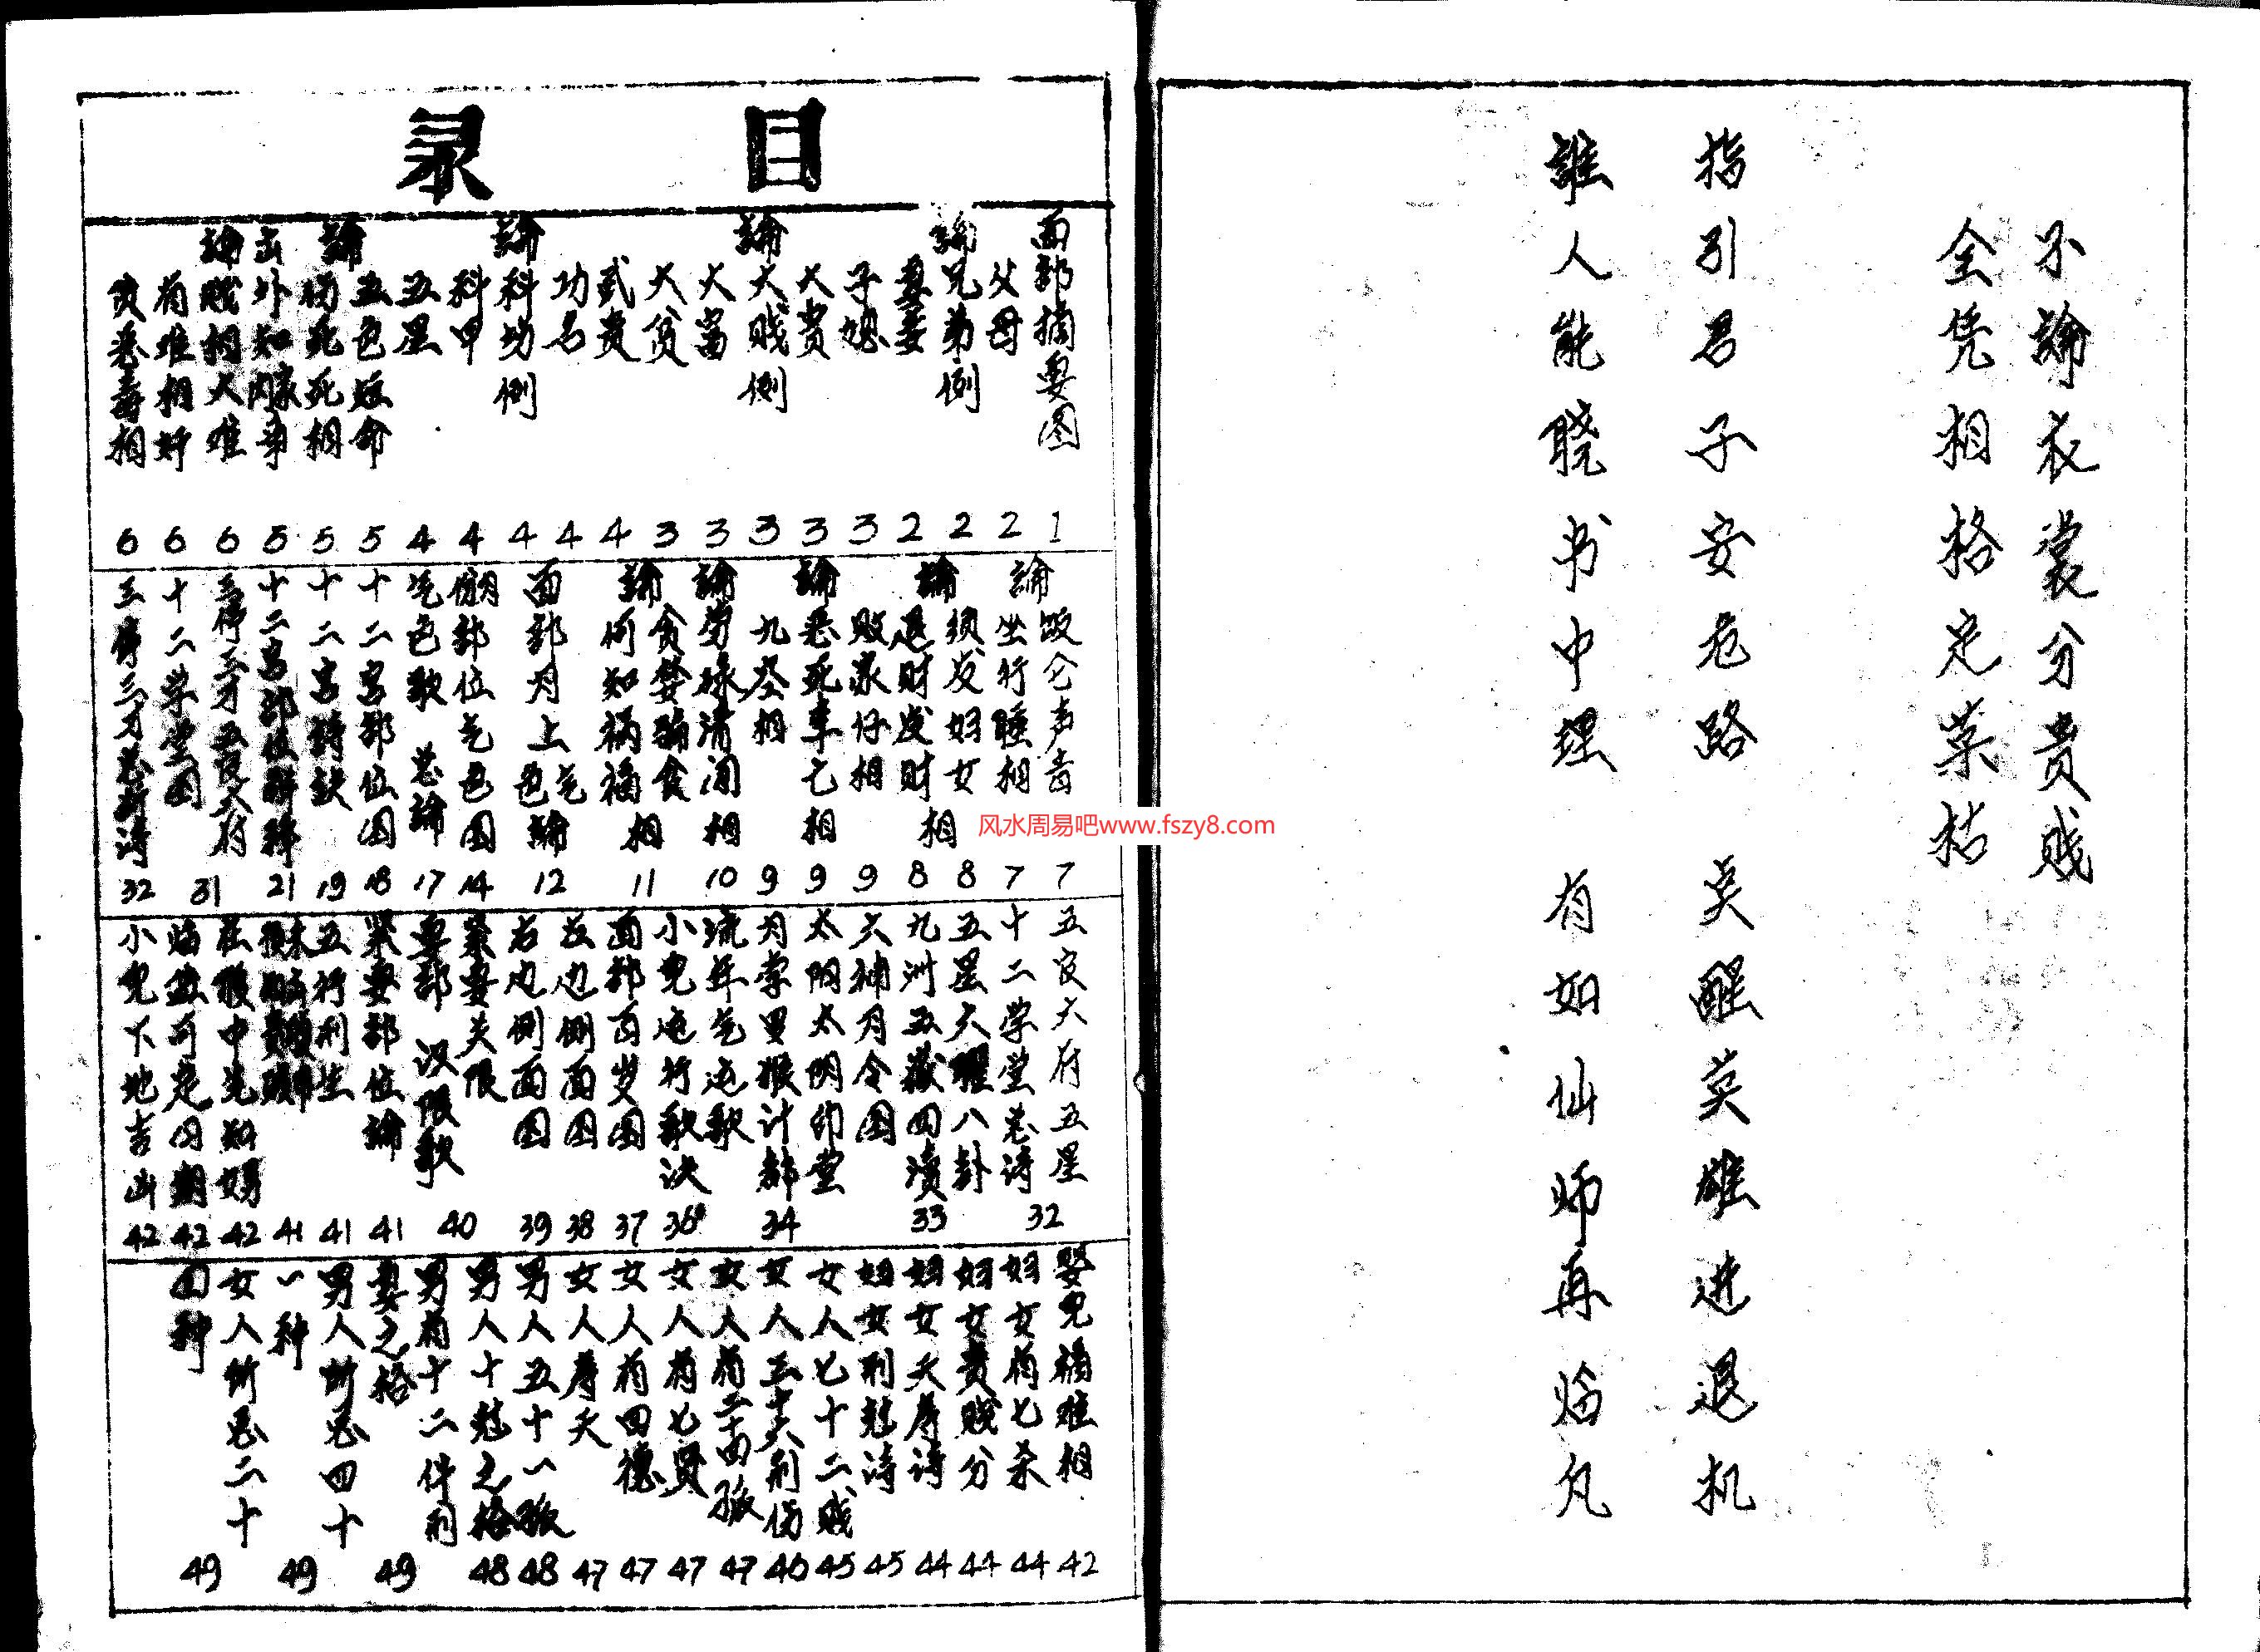 不論衣裳分贵贱
全凭相格定菓枯
指引君子安危路 奌醒英雄进退机
誰人能晓书中理 有如仙师再临凡
目录
面部摘要图 1
父母 2
論兄弟例 2
妻妾 2
子媳 3
大贵 3
論大贱例 3
大富 3
大贫 3
武贵 4
功名 4
論科功例 4
科甲 4
五星 4
五色短命 5
論凶死死相 5
出外知家内事 5
論贱相大难 6
有难相奸 6
贪恶毒相 6
論饭仑声音 7
坐行睡相 7
须发妇女 8
論退财发财相 8
败家仔相 9
論恶死车亡相 9
九空相 9
論劳碌清闲相 10
贪婪骗食相 11
論何知祸福
面部月上气色論 12
倗部位气色图 14
气色歌 总論 17
十二宫部位图 18
十二宫詩訣 19
十二宫部位解释 21
三停三才五官六府 31
十二学堂图
三停三才总断诗 32
五官六府五星 32
十二学堂总诗
五星六曜八卦 33
九州五嶽四瀆
六神月令图
太阳太阴印堂
月孛罗猴计都 34
流年气运歌
小児运行歌决 36
面部百岁图 37
左边侧面图 38
右边侧面图 39
紧要关限 40
要部 汉限歌
紧要部位論 41
五行刑生 41
41
在腹中先知男女 42
临盆可定日期 42
小児下地吉凶 42
婴児福难相 42
妇女有七杀 44
妇女贵贱分 44
妇女夭寿诗 44
妇女刑尅诗 45
女人七十二贱 45
女人三十六刑伤 46
女人有二十四孤 47
女人有七贤 47
女人有四德 47
女人寿夭 47
男人五十一孤 48
男人十尅之格 48
男有十二件刑妻之格 49
男人断总四十一种 49
女人断总二十四种 49
风水周易吧www.fszy8.com